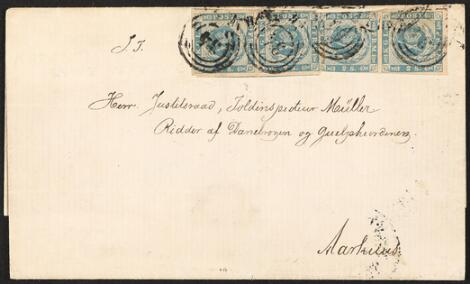 S. T.
Herr Justitsraad, Toldinspecteur Müller
Ridder af Dannebrogen og Guelpheordenen
Aarhuus